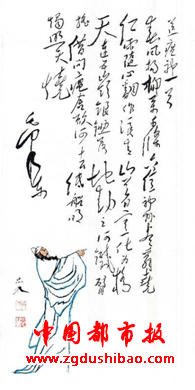 送瘟神一首
春风杨柳万千条六亿神州尽舜尧
红雨随心翻作浪青山着意化为桥
天连五岭银锄落地动三河铁臂
摇借问瘟君欲何往纸船明
烛照天烧
毛泽东
中国都市报
www.zgdushibao.com